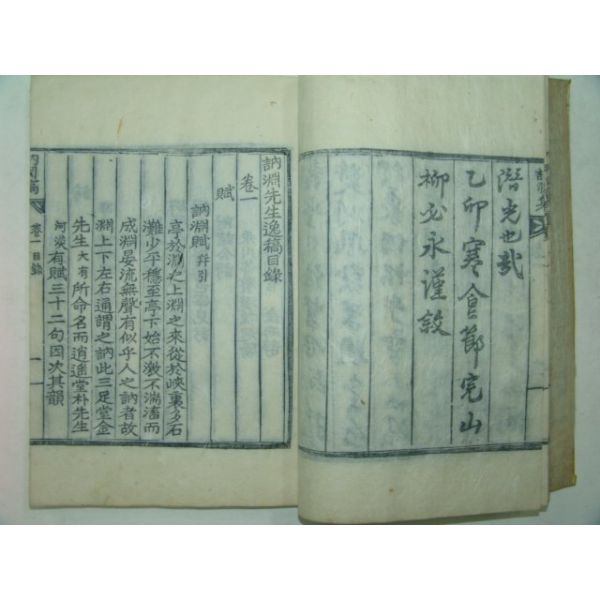 潛光也哉
乙卯寒食節完山
柳必永謹敘
訥淵先生逸稿目錄
卷一
賦
訥淵賦 幷引
亭於淵之上淵之來從於峽裏多石
灘少平穩至亭下始不激不湍滀而
成淵晏流無聲有似乎人之訥者故
淵上下左右通謂之訥此三足堂金
先生大有所命名而逍遙堂朴先生
河淡有賦三十二句因次其韻
卷一 目錄
一